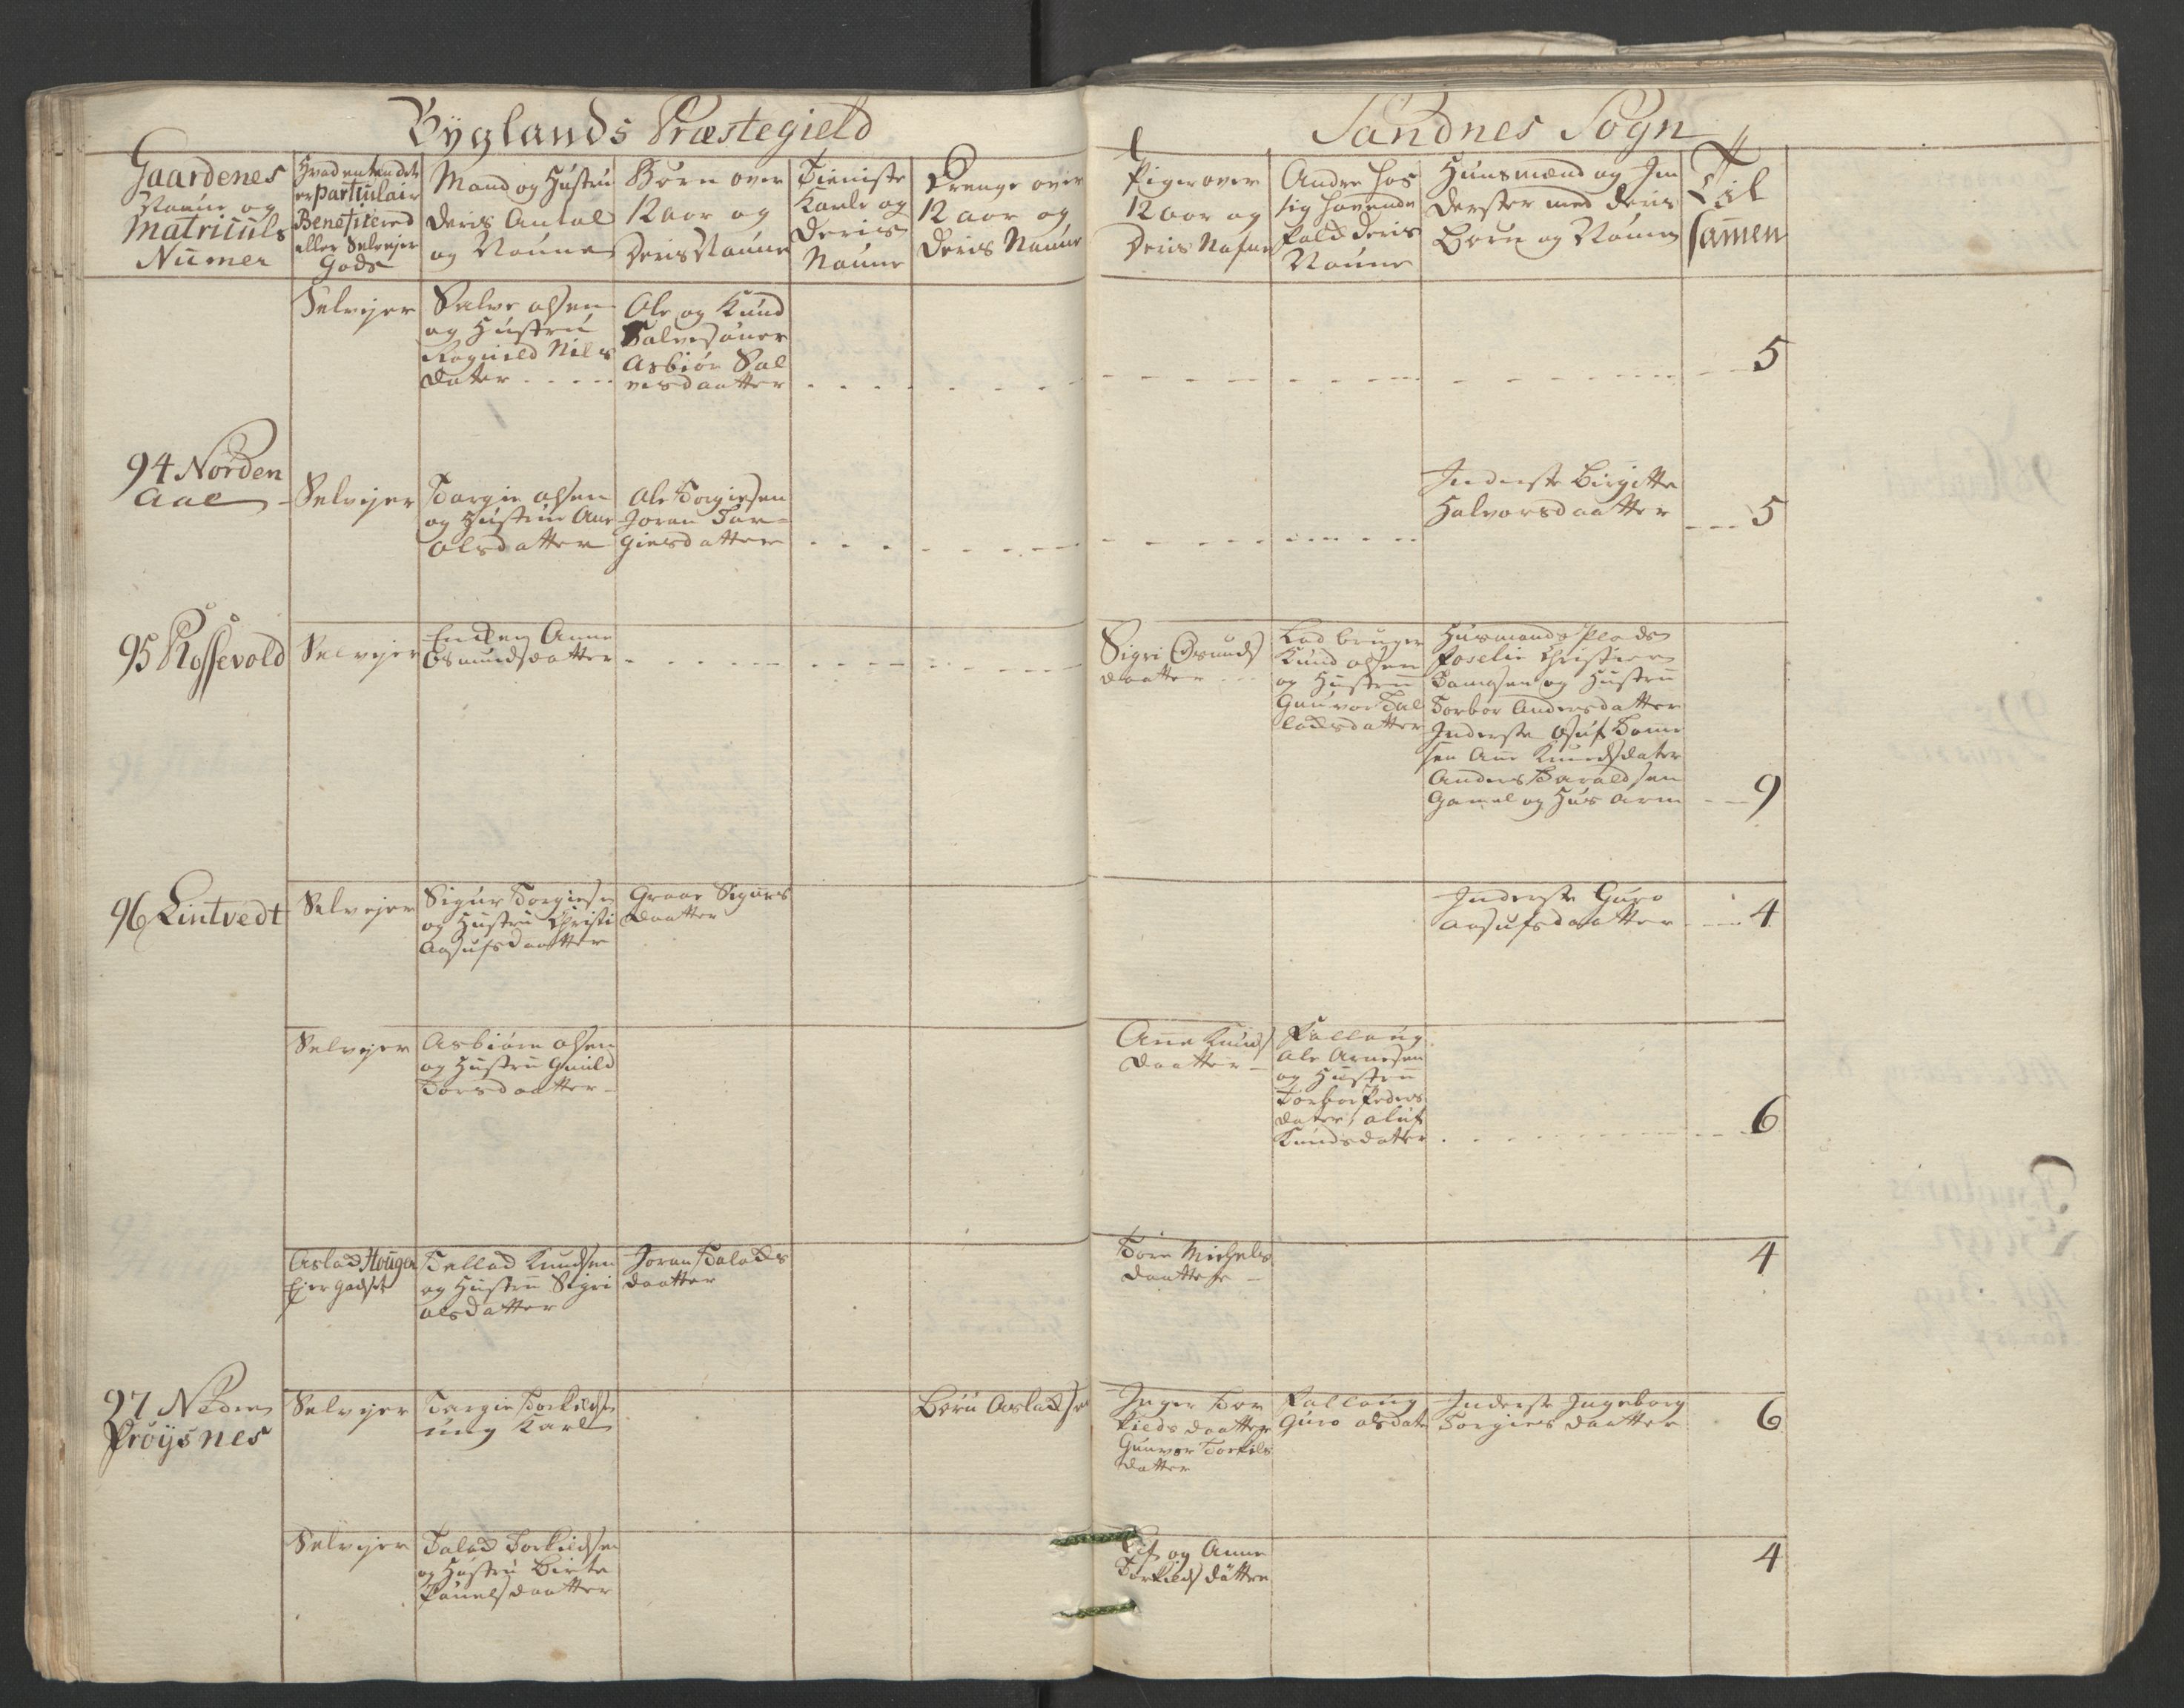 Bÿglands Præstegield
Sandnes Sogn
Gaardenes
Naune og
Matriculs
Numer
Hvad enten det
er Particulair
Beneficered
eller Selvejer
Gods
Mand og Hustru
Deris Antal
og Naune
Børn over
12 aar og
Deris Naune
Tieniste
Karle og
Deris
Naune
Drenge over
12 aar og
Deris Naune
Piger over
12 aar og
Deris Nafne
Andre hos
sig havende
Fold deris
Naune
Huusmænd og In
derster med deris
Børn og Naune
Til
samen
Selvejer
Salve olsen
og Hustru
Ragnild Nils
dater
Ole og Knud
Salvesøner
Asbiør Sal
vesdaatter
5
94 Norden
Aae
Selvejer
Targie olsen
og Hustrue Ane
olsdatter
Ole Torgiesen
Joran Tar-
giesdatter
Inderste Birgitte
Halvorsdaatter
5
95 Rossevold
Selvejer
Encken Anne
Osmundsdatter
Sigri Osmunds
daatter
Lod bruger
Knud olsen
og Hustru
Gunvor Tal
lodsdatter
Husmands Plads
Foselie Christen
Tamesen og Hustru
Torbor Andersdatter
Inderste Osuf Tome
sen Ane Knudsdater
Anders Haraldsen
Gamel og Hus arm
9
96 Lintvedt
Selvejer
Sigur Torgiesen
og Hustru Christi
Aasufsdaatter
Graae Sigurs
daatter
Inderste Guro
Aasufsdaatter
4
Selvejer
Asbiørn olsen
og Hustru Gunild
Torsdaatter
Ane Knuds
daatter
Follaug
Ole Arnesen
og Hustru
Torbor Peders
dater, oluf
Knudsdater
6
Aslad Hougen
Ejer godset
Tellad Knudsen
og Hustru Sigri
olsdatter
Joran Talads
daatter
Tore Michels
daatter
4
97 Neden
Frøÿsnes
Selvejer
Targie Torkildsen
ung Karl
Børu Asladsen
Inger Tor
kieds daatter
Gunvor Torkils
datter
Follaug
Guro olsdater
Inderste Ingeborg
Torgies daatter
6
Selvejer
Talad Torkildsen
og Hustru Birte
Pouelsdaatter
og Anne
Torkilds døttre
4